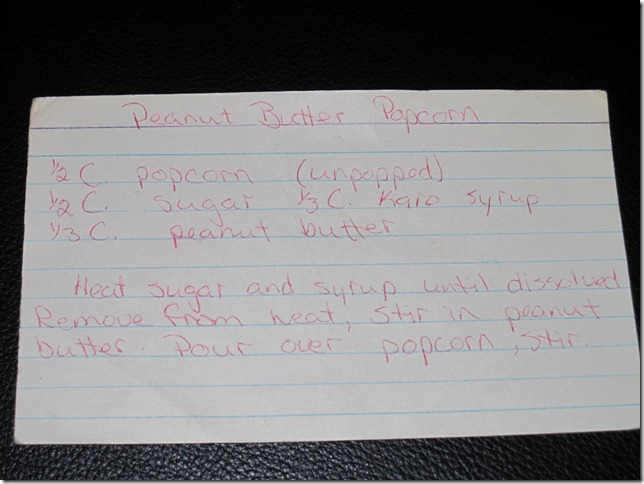 Peanut Butter Popcorn
1/2 C popcorn (unpopped)
1/2 C. sugar 1/3 C. Karo syrup
1/3 C. peanut butter
Heat sugar and syrup until dissolved
Remove from heat, stir in peanut
butter. Pour over popcorn, stir.